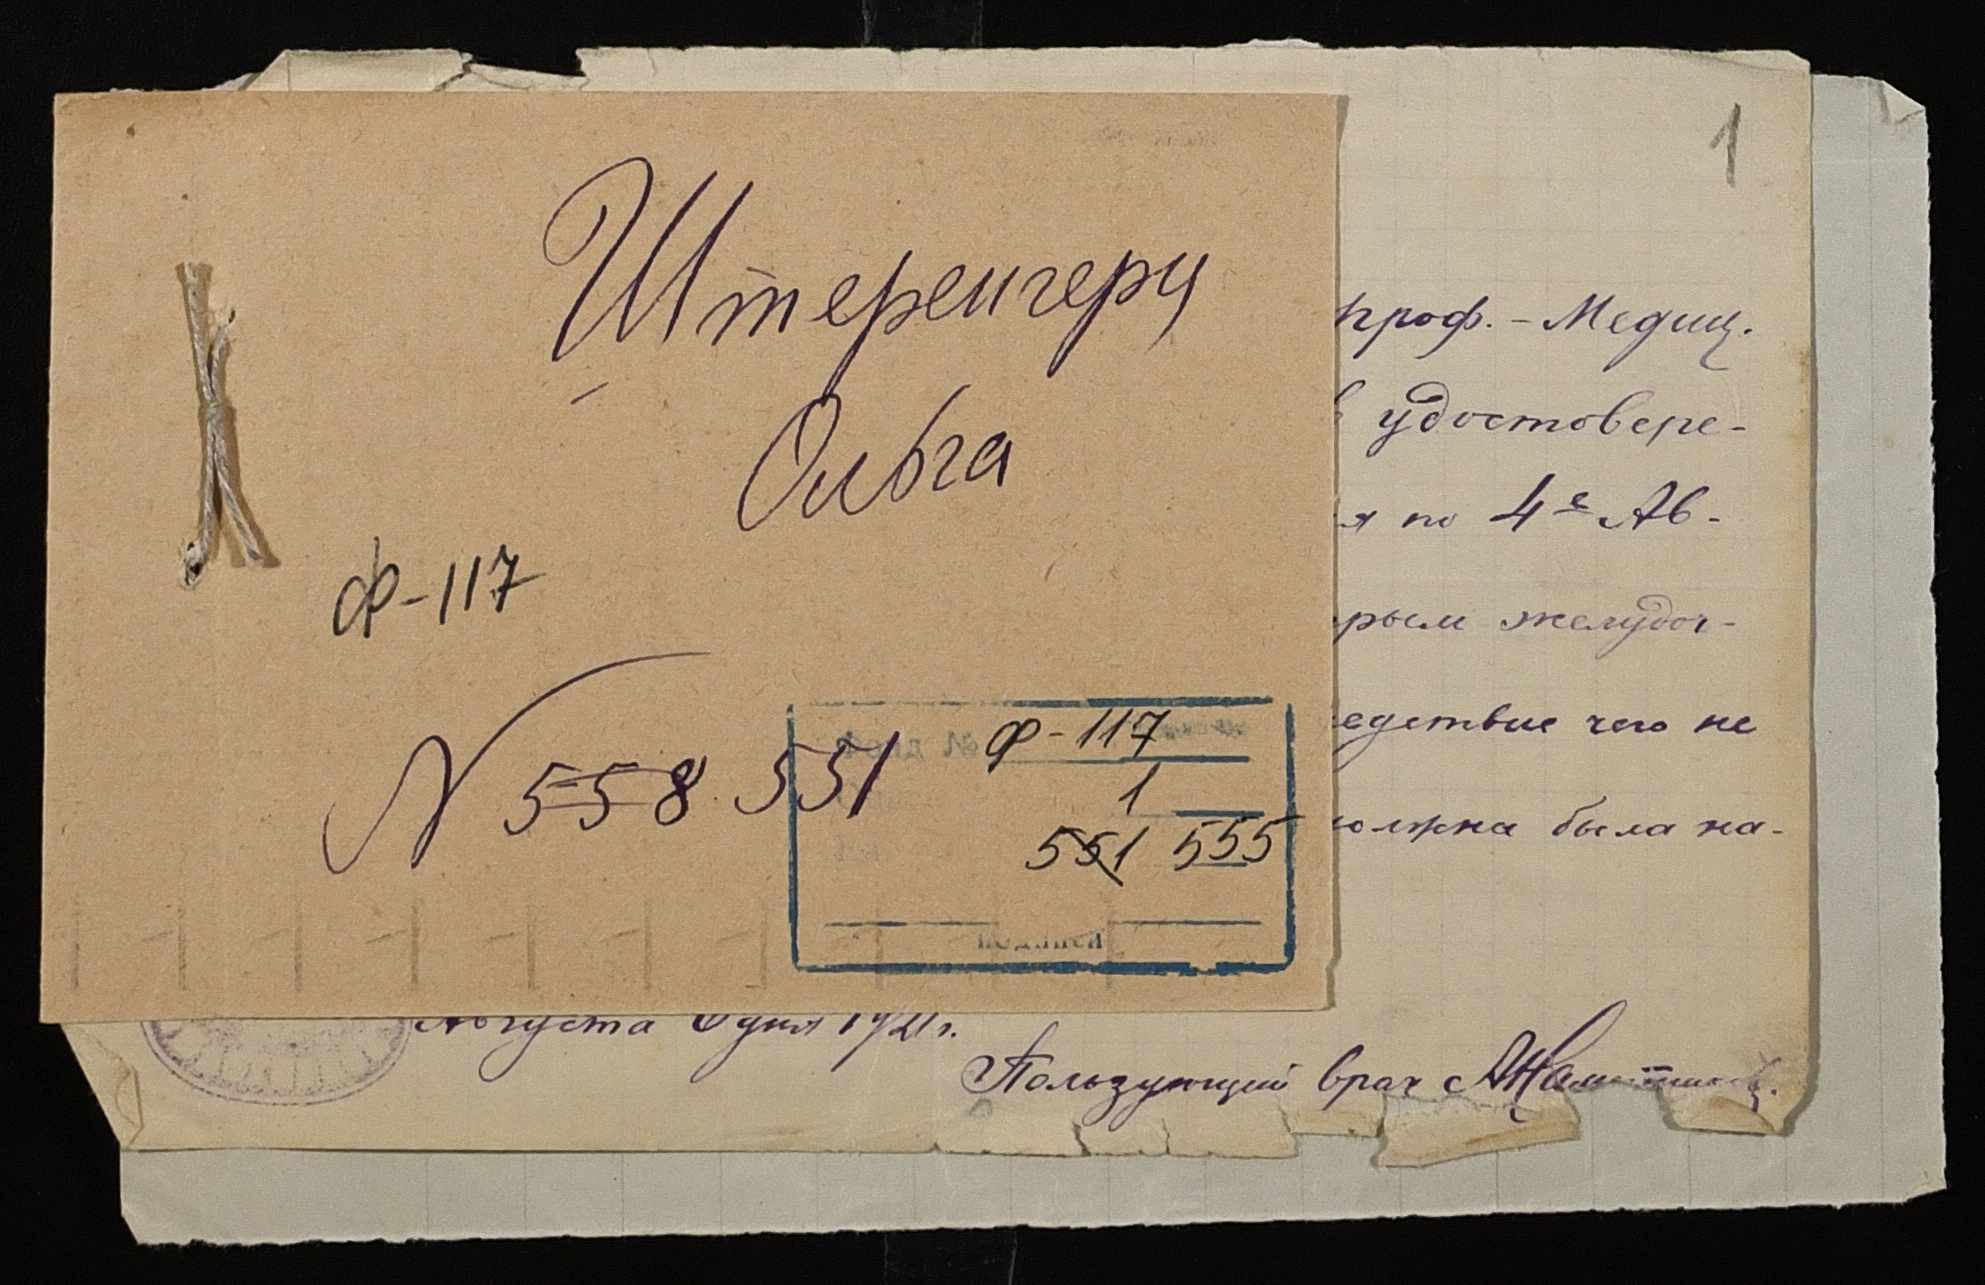 1
Штеренгерц
Ольга
Ф-117
N 558 551
Ф-117
1
551 555
подписи
проф.-Медиц.
удостовере-
я по 4е Ав-
рым желудоч-
едствие чего не
олжна была на-
Августа 6 дня 1921 г.
Пользующий врач